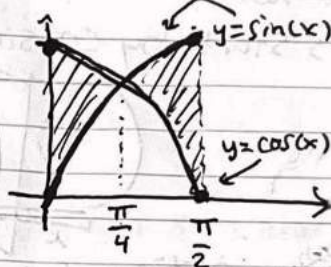 y=sin(x)
y=cos(x)
π/4
π/2